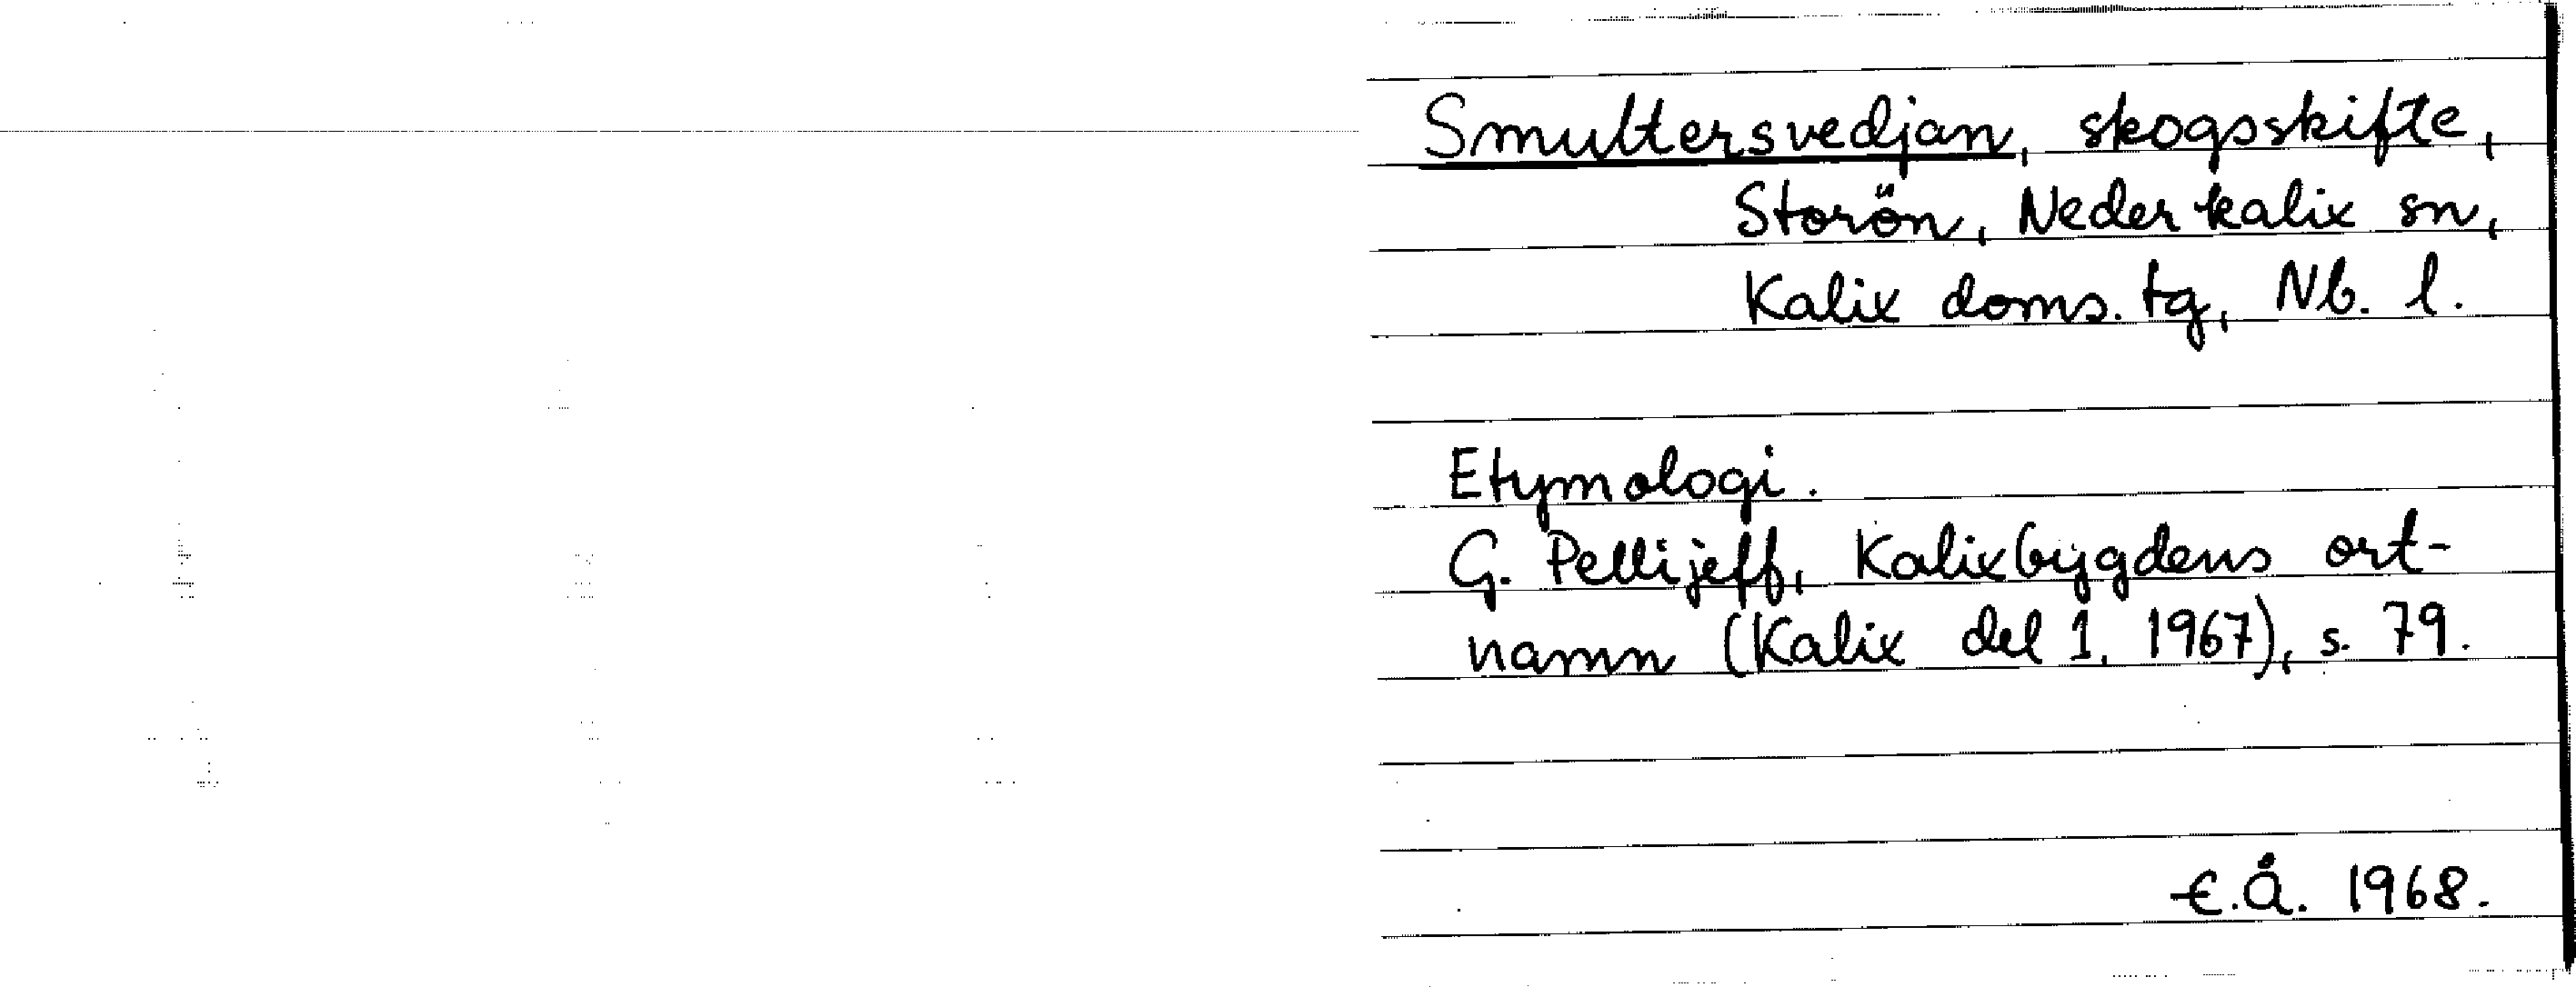 Smultersvedjan, skogsskifte,
Storön, Nederkalix sn,
Kalix doms. tg, Nb. l.
Etymologi.
G. Pellijeff, Kalixbygdens ort-
namn (Kalix del 1, 1967), s. 79.
E.Å. 1968.